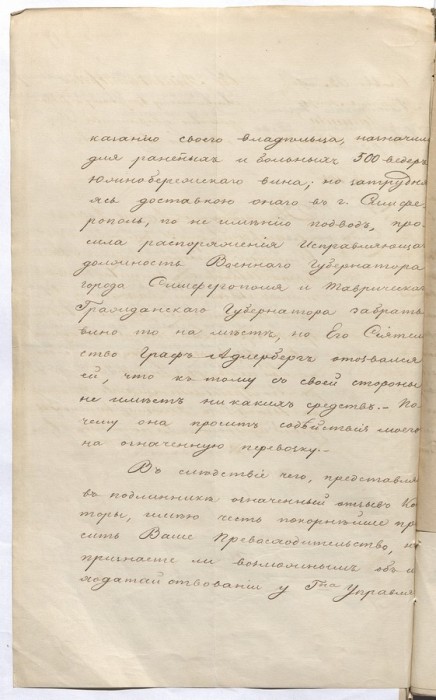 казанію своего владѣльца, назначила
для раненыхъ и больныхъ 500 ведеръ
Южнобережскаго вина; но затрудня
ясь доставкою онаго въ г. Симфе-
рополь, по не имѣнію подводъ, про-
сила распоряженія Исправляющаго
должность Военнаго Губернатора
города Симферополя и Таврическаго
Гражданскаго Губернатора забрать
вино то на мѣстѣ, но Его Сіятель
ство Графъ Адлербергъ отозвался
ей, что къ тому со своей стороны
не имѣетъ никакихъ средствъ. — По-
чему она проситъ содѣйствія моего
на означенную перевозку. —
Въ слѣдствіе чего, представляя
въ подлинникѣ означенный отзывъ Кон
торы, имѣю честь покорнѣйше про
сить Ваше Превосходительство, не
признаете ли возможнымъ объ
ходатайствованіи у Гна Управля